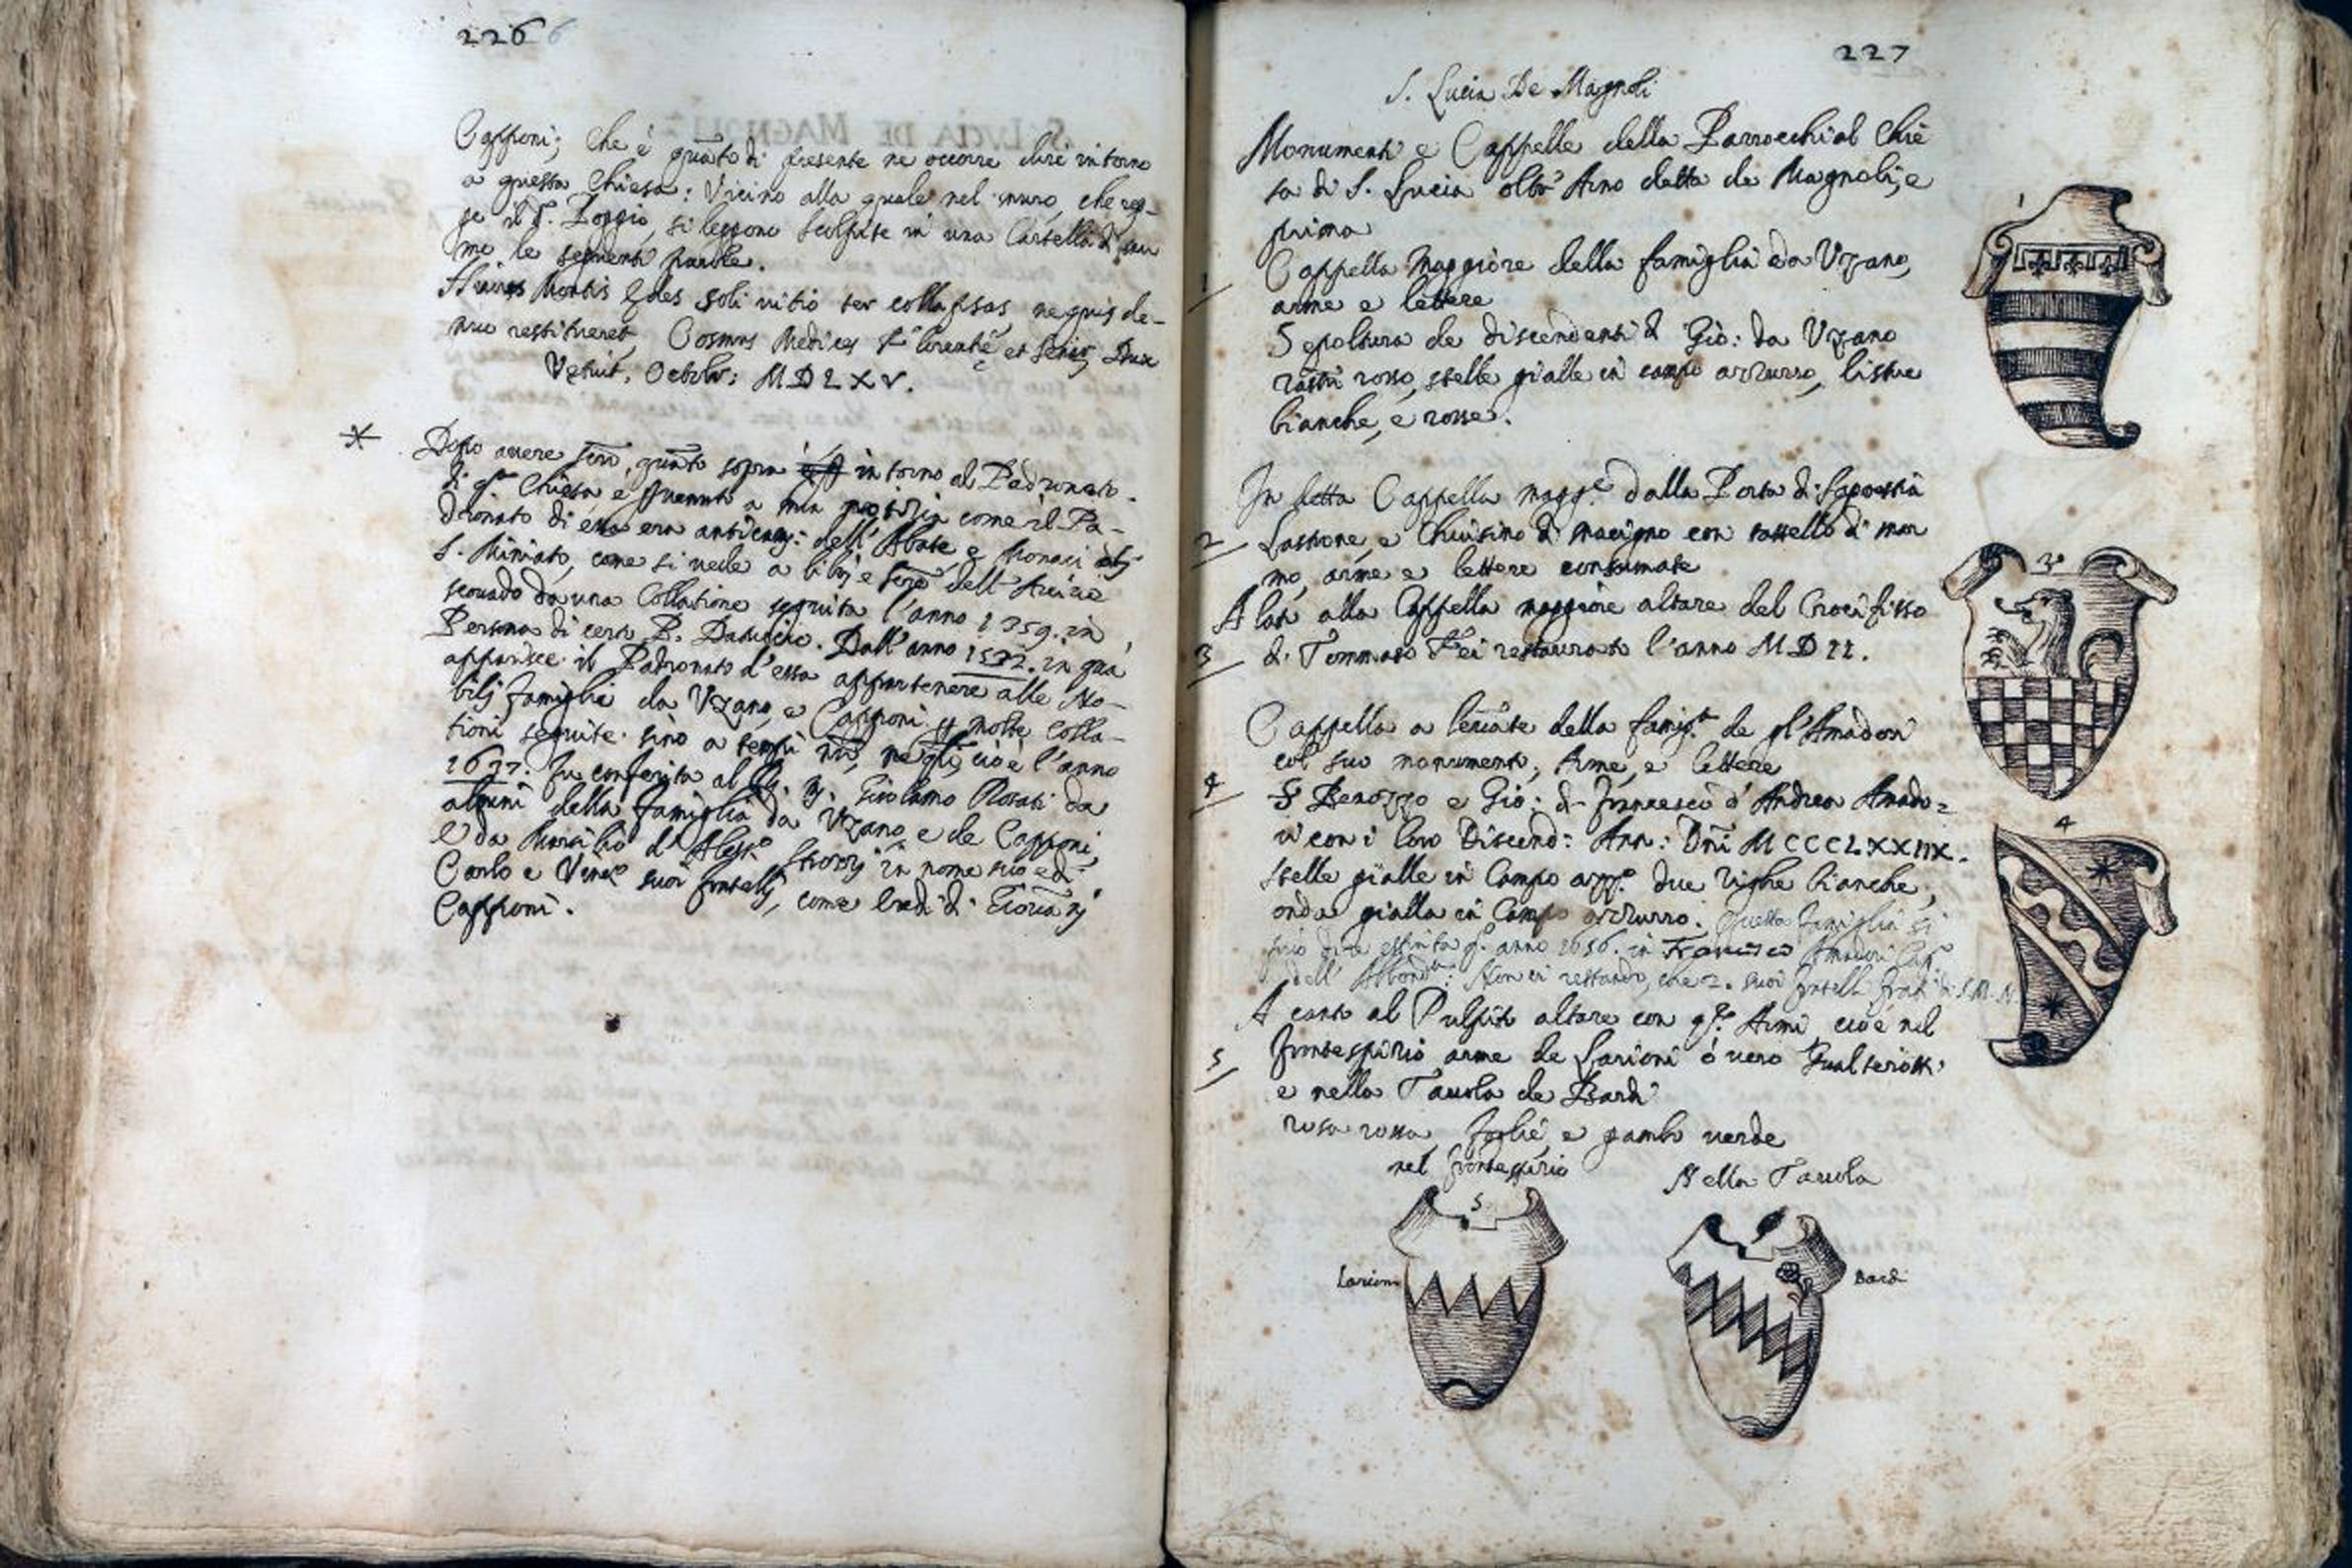 226
Capponi; Che è quãto di presente ne occorre dire intorno
a questa Chiesa: Vicino alla quale nel muro, che reg-
ge il Poggio, si leggono scolpite in una Cartella di mar
mo le seguenti parole.
Huius Montis Ædes soli vitio ter collapsas ne quis de-
nuo restitueret Cosmus Medices Florentẽ et Senẽ Dux
Vetuit, Octobr: MDLXV.
* Dopo avere quãto sopra intorno al Padronato
di Chiesa è pvenuto a mia notizia come il Pa-
dronato di essa era anticam: dell'Abate e Monaci di
S. Miniato, come si vede a libri e dell'Arcive
scovado da una Collatione seguita l'anno 1359. in
Persona di certo P. Dall'anno in qua
apparisce il Padronato d'essa appartenere alle No-
bili famiglie da Vzano, e Capponi p molte Colla-
tioni seguite sino a tempi nri, ne gli, cioè l'anno
1677. fu conferita al Girolamo Rosati da
alcuni della famiglia da Vzano, e de Capponi,
e da d'Aless.º Strozzi in nome suo e di
Carlo e Vinc.º suoi fratelli, come eredi di
Capponi.
227
S. Lucia De Magnoli
Monumenti e Cappelle della Parrocchial Chie
sa di S. Lucia oltr'Arno detta de Magnoli, e
prima
1 Cappella Maggiore della famiglia da Vzano,
arme e lettere
Sepoltura de discendenti di Gio: da Vzano
rastri rosso, stelle gialle in campo azzurro, listre
bianche, e rosse.
In detta Cappella magg.e dalla Porta di Sagrestia
2 Lastrone, e Chiusino di macigno con tassello di mar
mo, arme e lettere consumate
A lato alla Cappella maggiore altare del Crocifisso
3 di Tommaso Fei restaurato l'anno MDII.
Cappella a levãte della famig.a de gl'Amadori
col suo monumento, Arme, e lettere
4 S Benozzo e Gio: di Francesco d'Andrea Amado=
ri con i loro Discend: Ann: Dñi MCCCLXXIIX.
stelle gialle in Campo azz.º due righe bianche,
onda gialla in Campo azzurro. questa famiglia si
può dire estinta q.º anno 1656. in Francesco Amadori Cap.º
dell' Abbond.za: Non ci restando, che 2. suoi fratelli frati di S.M.N.
A canto al Pulpito altare con q.te Armi cioè nel
5 frontespizio arme de Larioni ò vero Gualterotti
e nella Tavola de Bardi
rosa rossa, foglie, e gambo verde
nel frontespizio
Nella Tavola
Larioni
Bardi
1
3
4
5